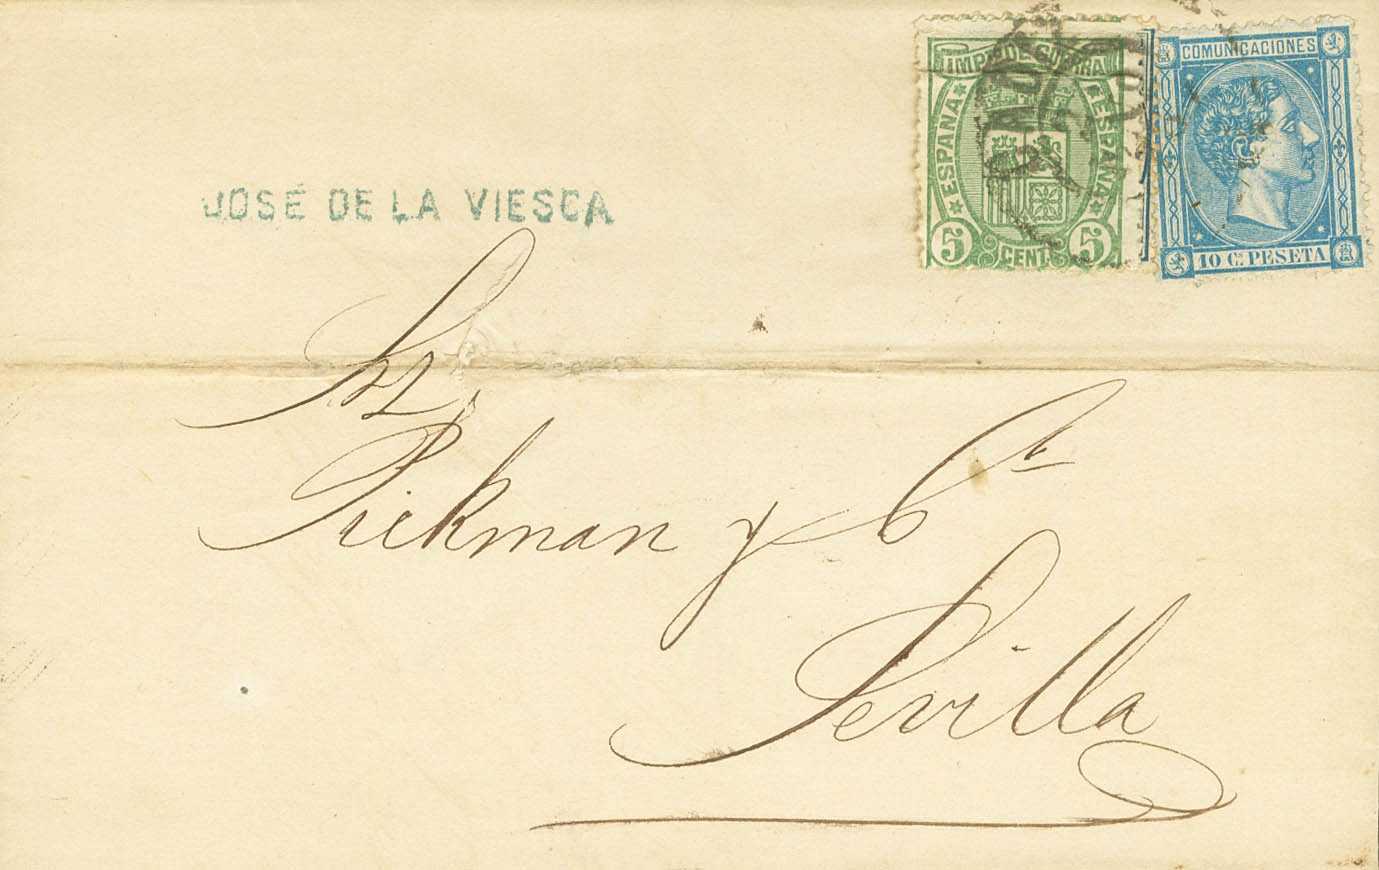 IMPTO DE GUERRA
ESPAÑA ESPAÑA
5 CENT. 5
COMUNICACIONES
10 Cs PESETA
JOSÉ DE LA VIESCA
Sr.
Pickman y Ca
Sevilla